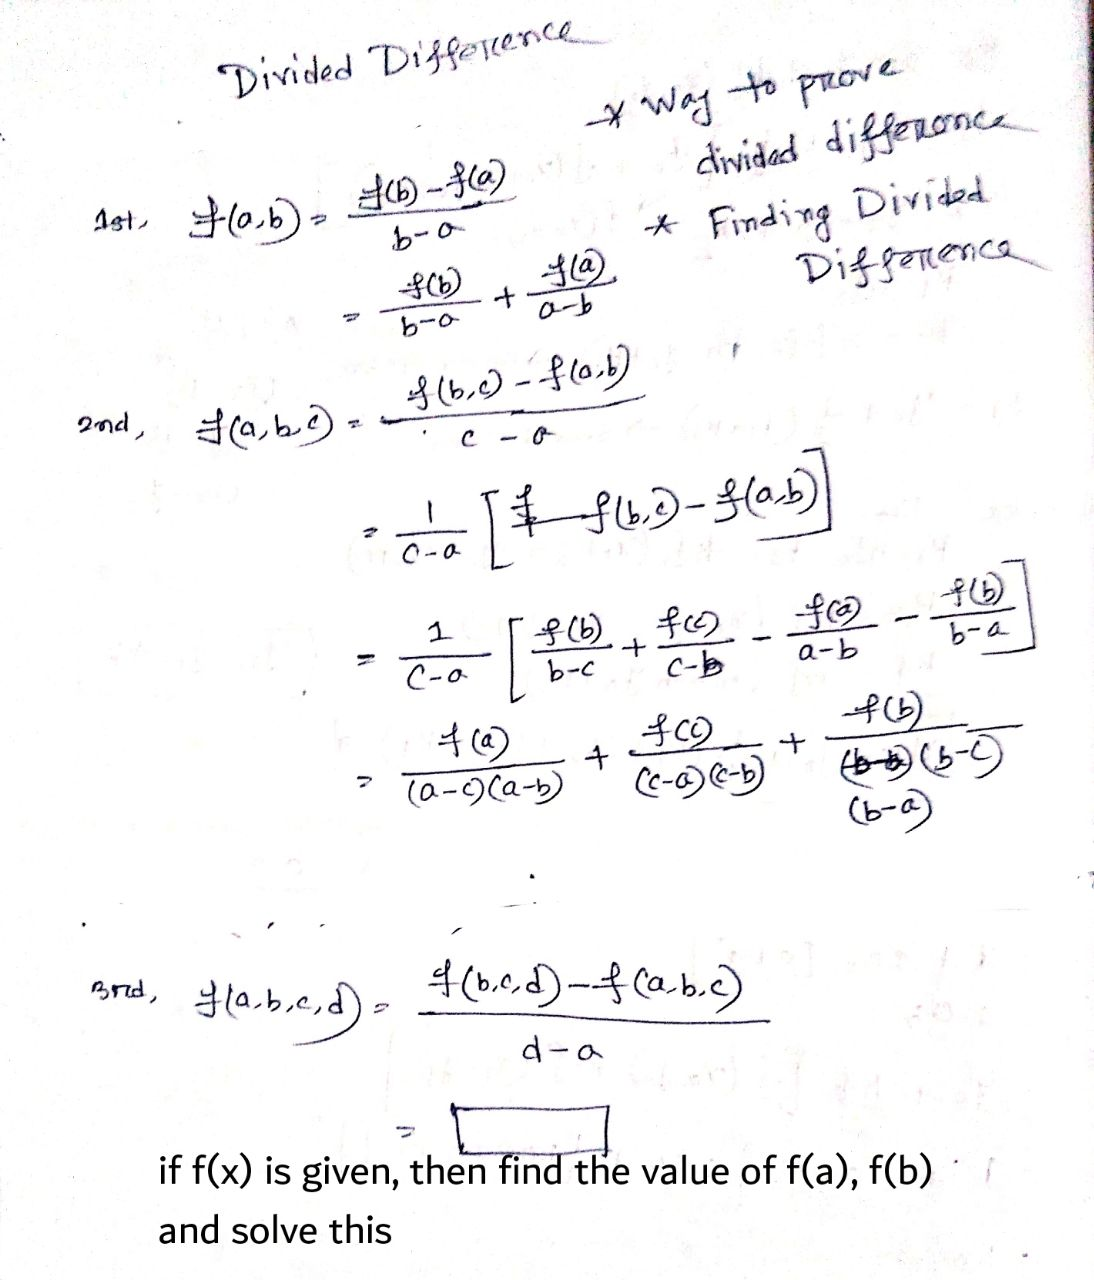 Divided Difference
* Way to prove
divided difference
* Finding Divided
Difference
1st, f(a,b) = f(b) - f(a) / b-a
= f(b) / b-a + f(a) / a-b
2nd, f(a,b,c) = f(b,c) - f(a,b) / c - a
= 1 / c-a [ f(b,c) - f(a,b) ]
= 1 / c-a [ f(b) / b-c + f(c) / c-b - f(a) / a-b - f(b) / b-a ]
= f(a) / (a-c)(a-b) + f(c) / (c-a)(c-b) + f(b) / (b-c)(b-a)
3rd, f(a,b,c,d) = f(b,c,d) - f(a,b,c) / d-a
=
if f(x) is given, then find the value of f(a), f(b)
and solve this